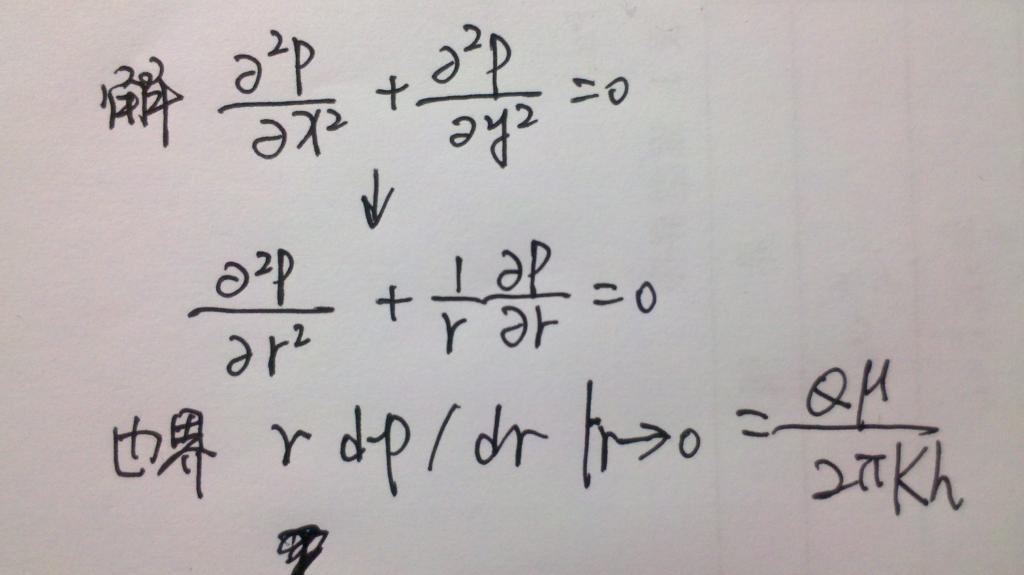 解 ∂²P/∂x² + ∂²P/∂y² = 0
↓
∂²P/∂r² + 1/r ∂P/∂r = 0
边界 r dp/dr |r→0 = Qμ/2πKh